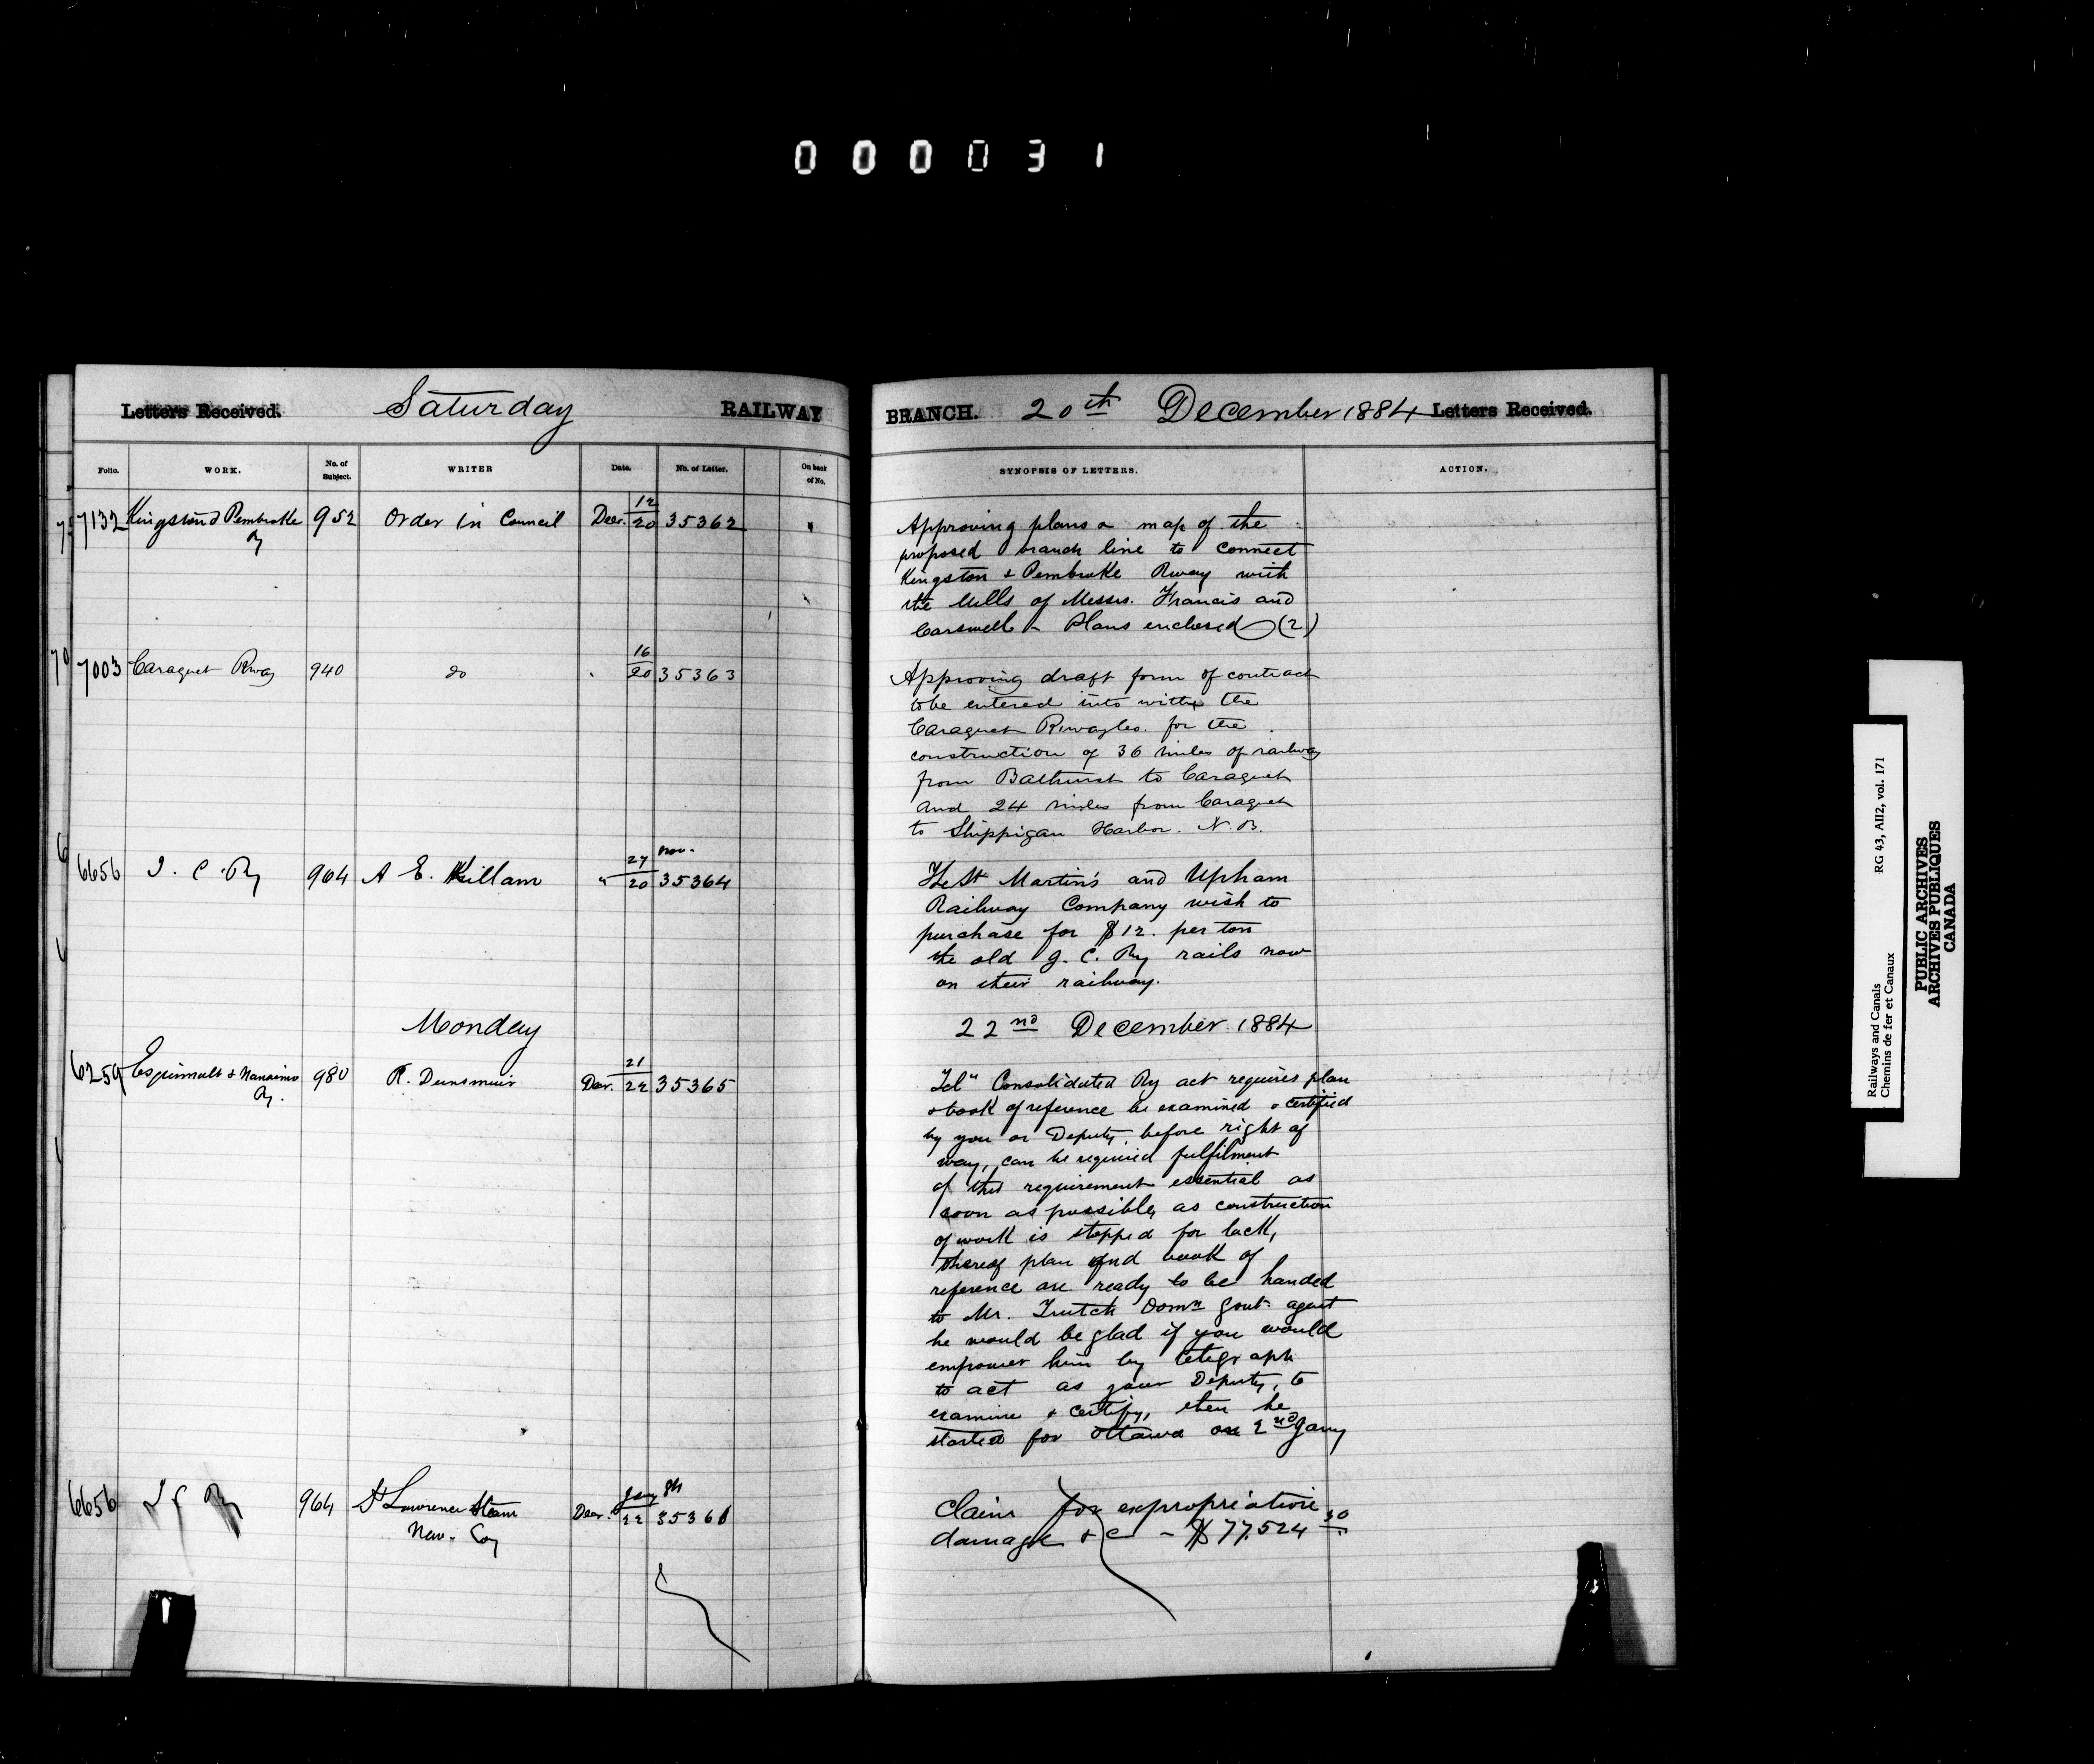 000031
Letters Received. Saturday RAILWAY BRANCH. 20th December 1884 Letters Received.
Folio. WORK. No. of Subject. WRITER Date. No. of Letter. On back of No. SYNOPSIS OF LETTERS. ACTION.
7132 Kingston & Pembroke Ry 952 Order In Council Decr. 12/20 35362
Approving plans & map of the
proposed branch line to connect
Kingston & Pembroke Rway with
the Mills of Messrs. Francis and
Carswell - Plans enclosed (2)
7003 Caraquet Rway 940 do " 16/20 35363
Approving draft form of contract
to be entered into with the
Caraquet Rway Co. for the
construction of 36 miles of railway
from Bathurst to Caraquet
and 24 miles from Caraquet
to Shippigan Harbor. N.B.
6656 I. C. Ry 964 A E. Killam " 27 Nov./20 35364
The St Martin's and Upham
Railway Company wish to
purchase for $12. per ton
the old I. C. Ry rails now
on their railway.
Monday 22nd December 1884
6259 Esquimalt & Nanaimo Ry. 980 R. Dunsmuir Decr. 21/22 35365
Tel" Consolidated Ry act requires plan
& book of reference be examined & certified
by you or Deputy, before right of
way, can be required fulfilment
of this requirement essential as
soon as possible, as construction
of work is stopped for lack,
thereof plan and book of
reference are ready to be handed
to Mr. Trutch Domn Govt. agent
he would be glad if you would
empower him by telegraph
to act as your Deputy, to
examine & certify, then he
started for Ottawa on 2nd Jany
6656 I C Ry 964 St Lawrence Steam Nav. Coy Decr. Jany 8th/22 35366
Claim for expropriation
damage &c - $77,524 30
Railways and Canals RG 43, AII2, vol. 171
Chemins de fer et Canaux
PUBLIC ARCHIVES
ARCHIVES PUBLIQUES
CANADA